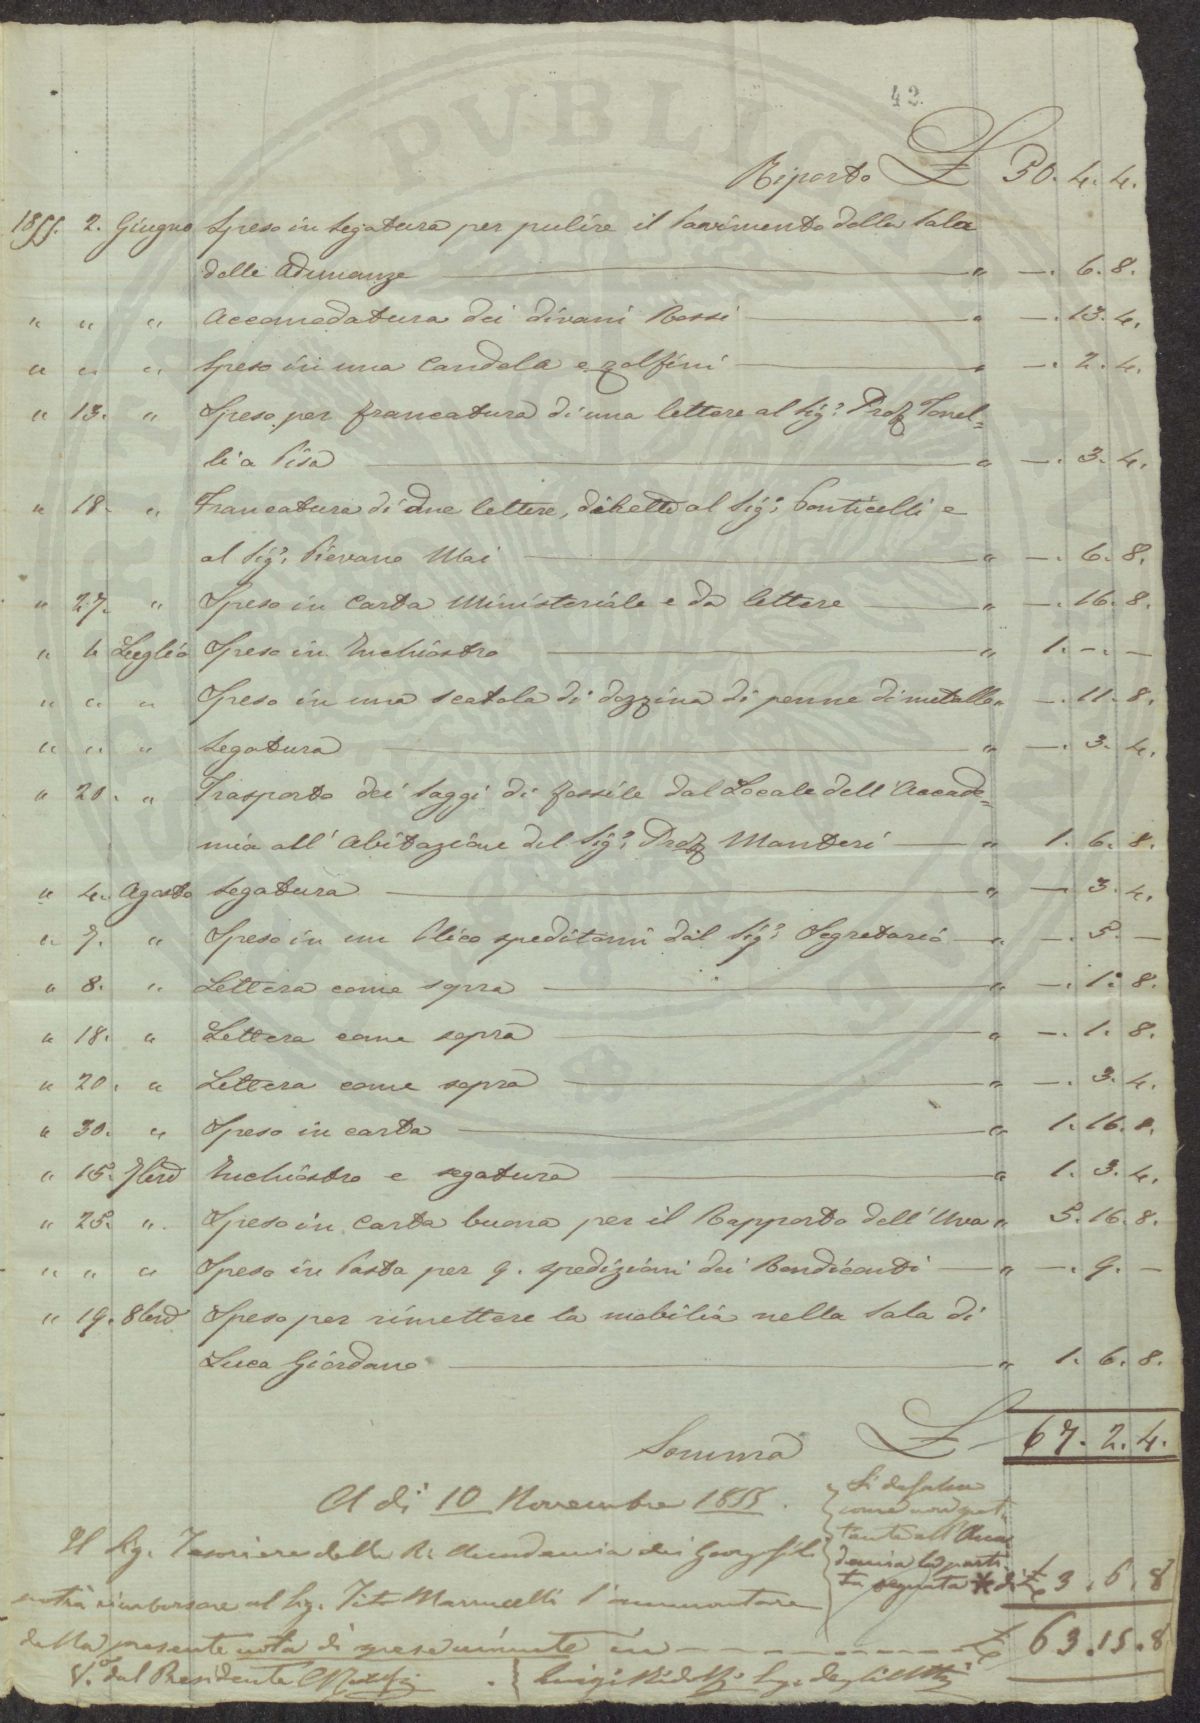 42.
Riporto £ 50. 4. 4.
1855. 2. Giugno Speso in Segatura per pulire il Pavimento della Sala
delle Adunanze " —. 6. 8.
" " " Accomodatura dei divani Rossi " —. 13. 4.
" " " Speso in una Candela e zolfini " —. 2. 4.
" 13. " Speso per francatura di una lettere al Sig.r Prof. Tonel=
li a Pisa " —. 3. 4.
" 18. " Francatura di due lettere, dirette al Sig.r Ponticelli e
al Sig.r Pievano Mai " —. 6. 8.
" 27. " Speso in Carta Ministeriale e da lettere " —. 16. 8.
" 6 Luglio Speso in Inchiostro " 1. —. —
" " " Speso in una scatola di dozzina di penne di metallo " —. 11. 8.
" " " Segatura " —. 3. 4.
" 20. " Trasporto dei Saggi di fossile dal Locale dell'Accade=
mia all'Abitazione del Sig.r Prof. Manteri " 1. 6. 8.
" 4. Agosto Segatura " —. 3. 4.
" 7. " Speso in un Plico speditomi dal Sig.r Segretario " —. 5. —
" 8. " Lettera come sopra " —. 1. 8.
" 18. " Lettera come sopra " —. 1. 8.
" 20. " Lettera come sopra " —. 3. 4.
" 30. " Speso in carta " 1. 16. 8.
" 15. 7bre Inchiostro e segatura " 1. 3. 4.
" 25. " Speso in Carta buona per il Rapporto dell'Uva " 5. 16. 8.
" " " Speso in Posta per 9. spedizioni dei Rendiconti " —. 9. —
" 19. 8bre Speso per rimettere la mobilia nella Sala di
Luca Giordano " 1. 6. 8.
Somma £ 67. 2. 4.
A di 10 Novembre 1855.
Si defalca
come non spet-
tante all'Acca
demia la parti-
ta segnata * di £ 3. 6. 8
Il Sig. Tesoriere della R. Accademia dei Georgofili
potrà rimborsare al Sig. Tito Marrucelli l'ammontare
della presente nota di spese minute in £ 63. 15. 8
V.o dal Presidente C Ridolfi
Luigi Ridolfi Seg. degli Atti